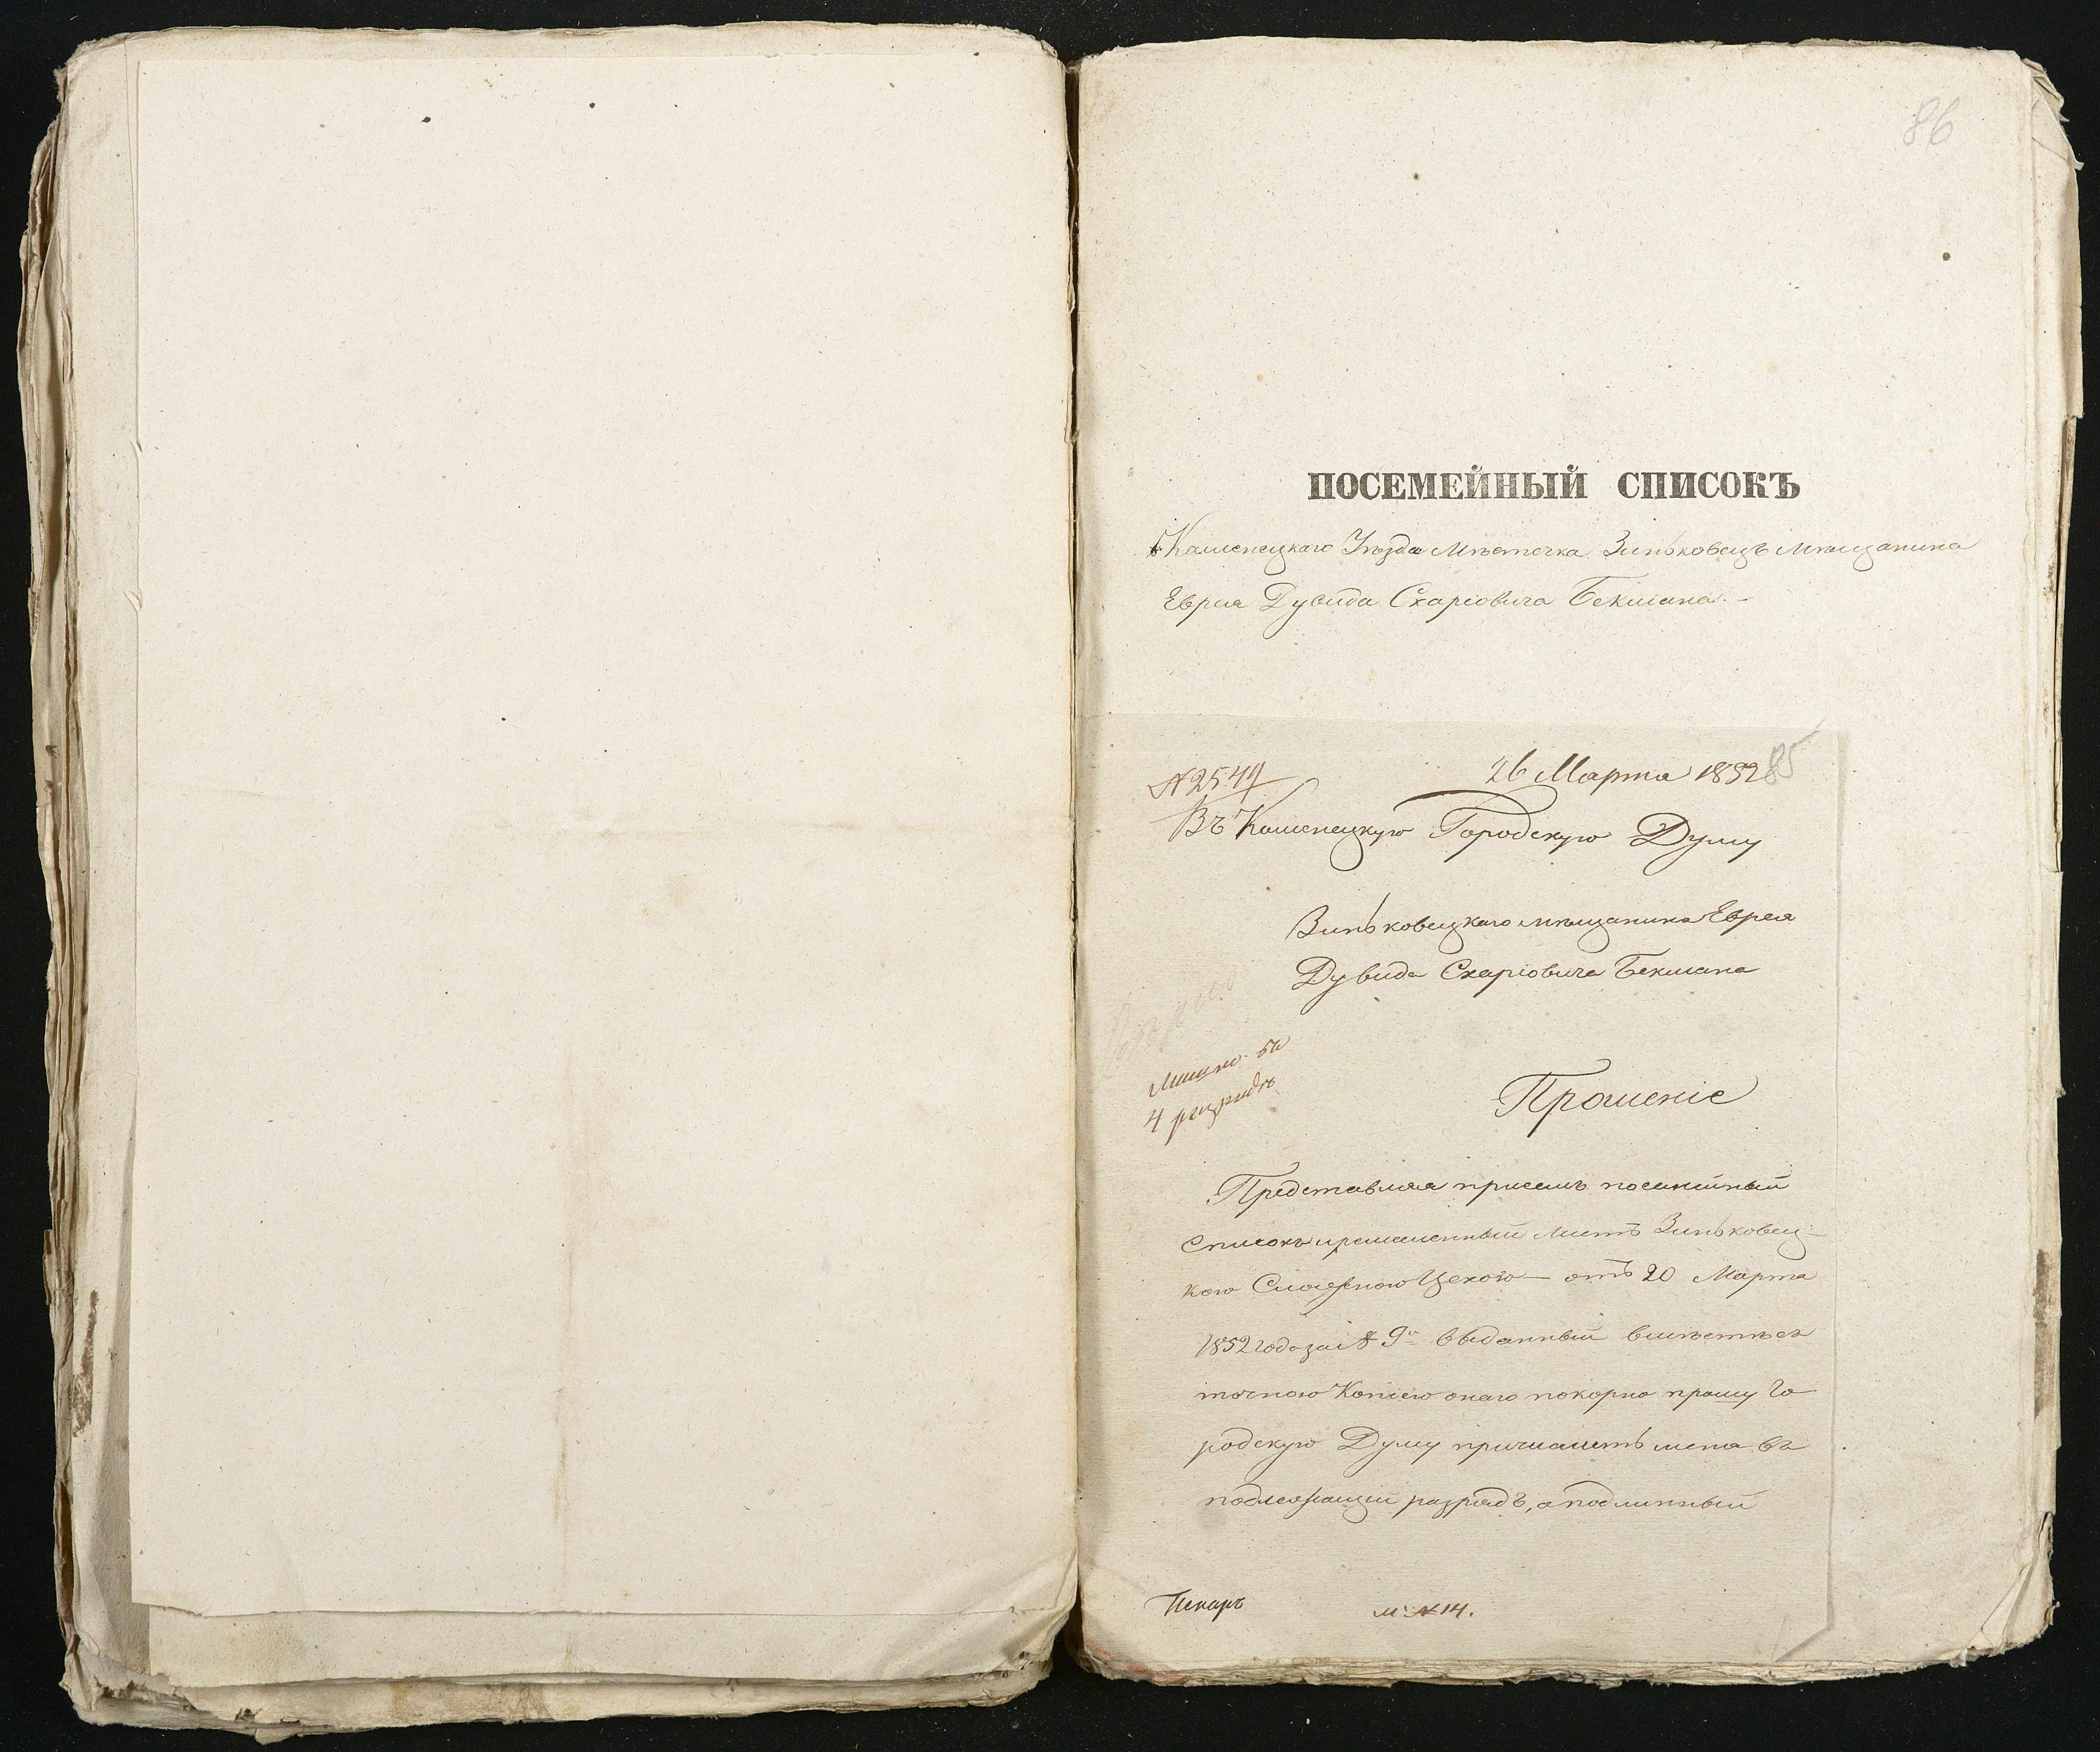 86
ПОСЕМЕЙНЫЙ СПИСОКЪ
Каменецкаго Уѣзда Мѣстечка Зиньковецъ мѣщанина
Еврея Дувида Схаріовича Бекмана.—
№ 2544
26 Марта 1852
85
Въ Каменецкую Городскую Думу
Зиньковецкаго мѣщанина Еврея
Дувида Схаріовича Бекмана
4 разрядъ
Прошеніе
Представляя присемъ посемейный
списокъ Зиньковец-
кою Цехою — отъ 20 Марта
1852 года за № 9м выданный вмѣстѣ съ
точною Копіею онаго покорно прошу Го
родскую Думу причислить меня въ
подлежащій разрядъ, а подлинный
Пекарь
м: № 14.